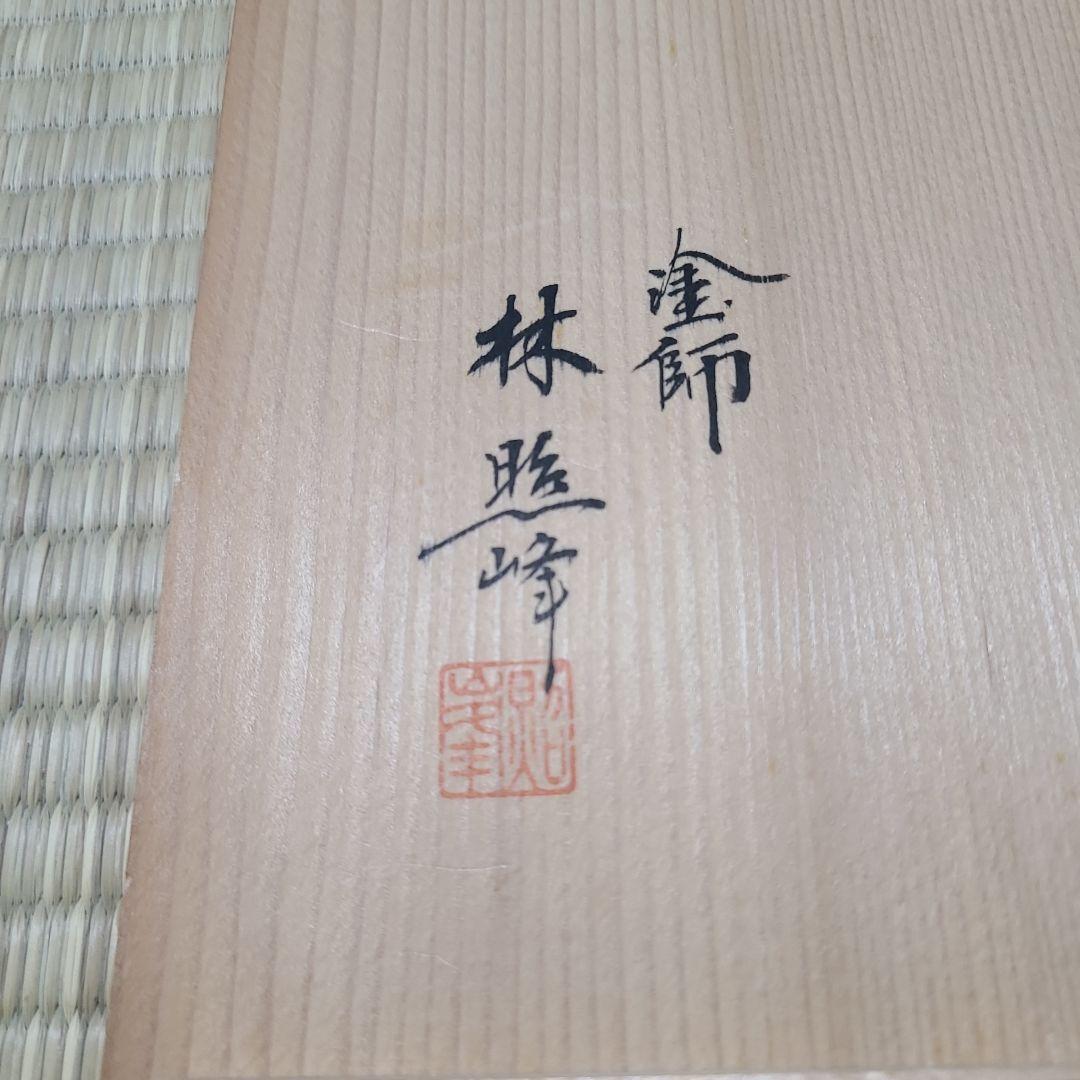 塗師
林照峰
照峯